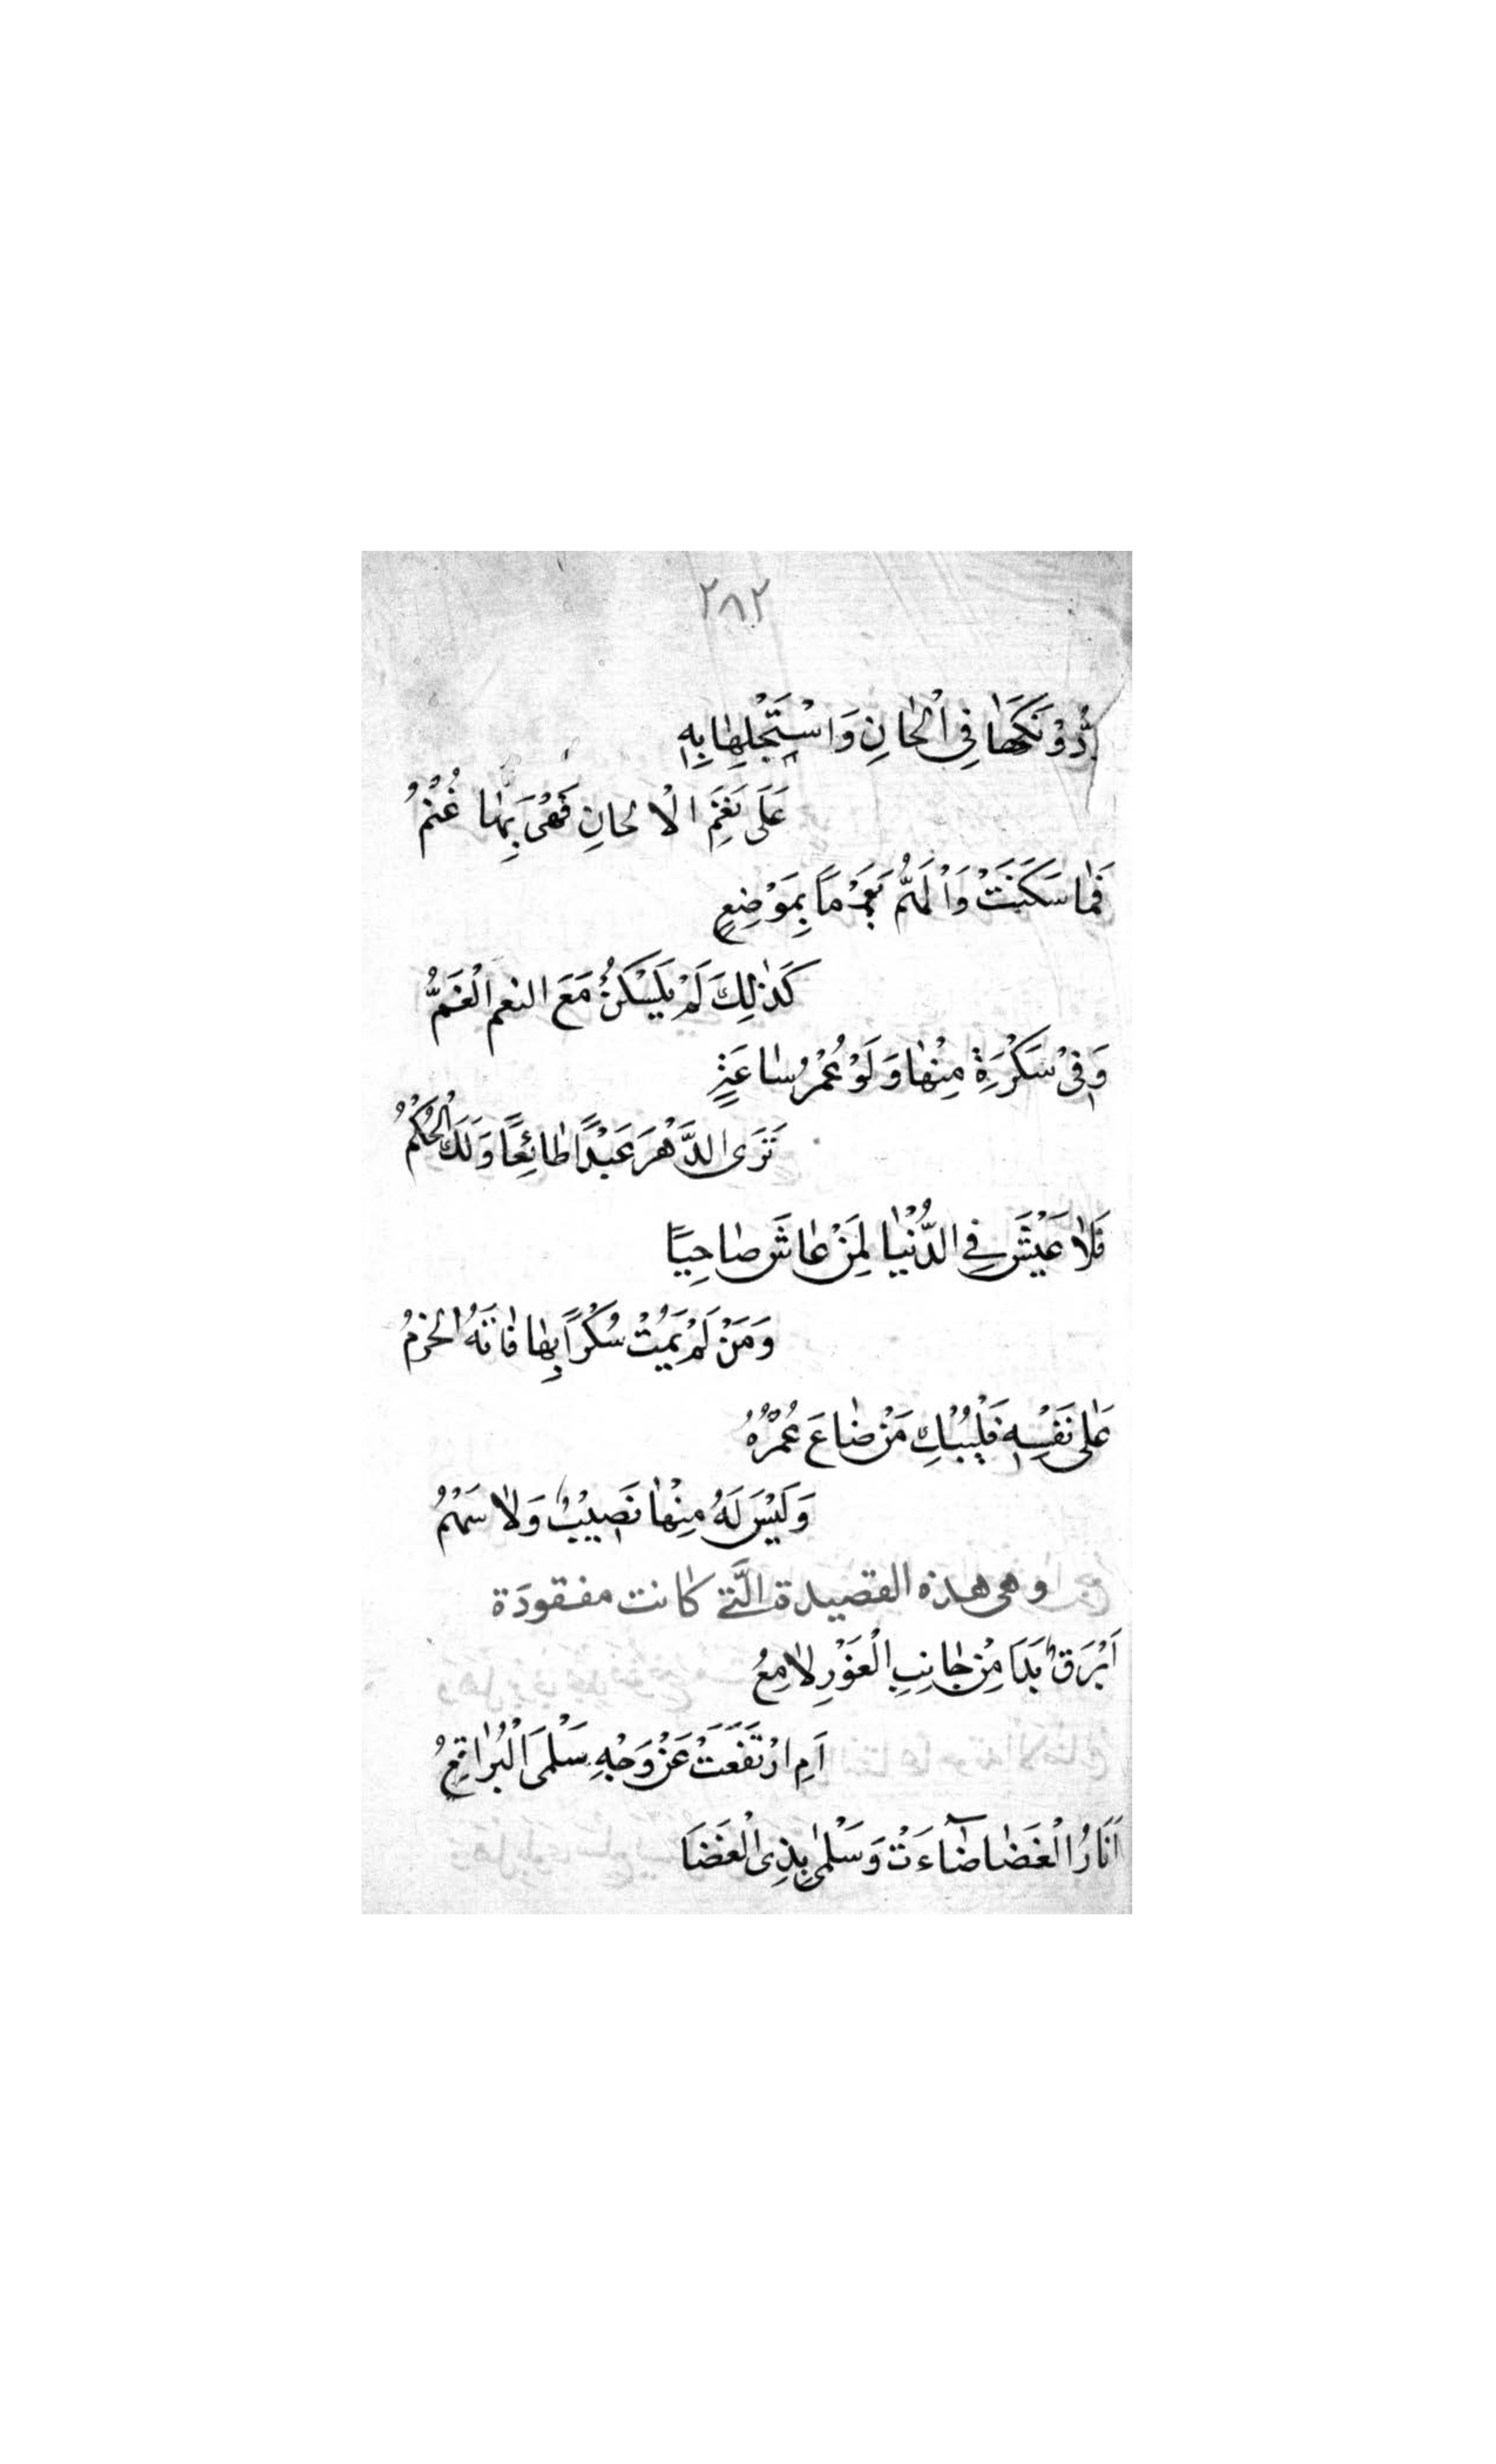 ٢٨٢
دُوْنَكَهَا فِي الْحَانِ وَاسْتَجْلِهَا بِهِ
عَلَى نَغَمِ الْالحانِ فَهْيَ بِهَا غُنْمُ
فَمَا سَكَنَتْ وَالْهَمُّ يَوْمًا بِمَوْضِعٍ
كَذٰلِكَ لَمْ يَسْكُنْ مَعَ النغم الْغَمُّ
وَفِيْ سَكْرَةٍ مِنْهَا وَلَوْ عُمْرُ سَاعَةٍ
تَرَى الدَّهْرَ عَبْدًا طَائِعًا وَلَكَ الْحُكْمُ
فَلَا عَيْشَ فِي الدُّنْيَا لِمَنْ عَاشَ صَاحِيًا
وَمَنْ لَمْ يَمُتْ سُكْرًا بِهَا فَاتَهُ الحَزْمُ
عَلَى نَفْسِهِ فَلْيَبْكِ مَنْ ضَاعَ عُمْرُهُ
وَلَيْسَ لَهُ مِنْهَا نَصِيْبٌ وَلَا سَهْمُ
وهي هذه القصيدة الَّتي كانت مفقودَة
اَبَرْقٌ بَدَا مِنْ جَانِبِ الْغَوْرِ لَامِعُ
اَمِ ارْتَفَعَتْ عَنْ وَجْهِ سَلْمَى الْبَرَاقِعُ
اَنَارُ الْغَضَا ضَاءَتْ وَسَلْمَى بِذِي الْغَضَا